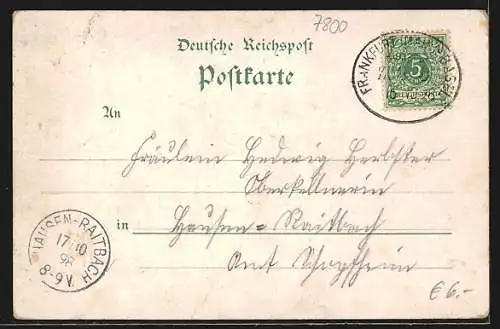 7800
Deutsche Reichspost
Postkarte
FRANKFURT (MAIN)
5
An
Fräulein Hedwig Herbster
Oberkellnerin
in Hausen-Raitbach
Amt Schopfheim
HAUSEN-RAITBACH
17 10
98
8-9V.
€ 6.-